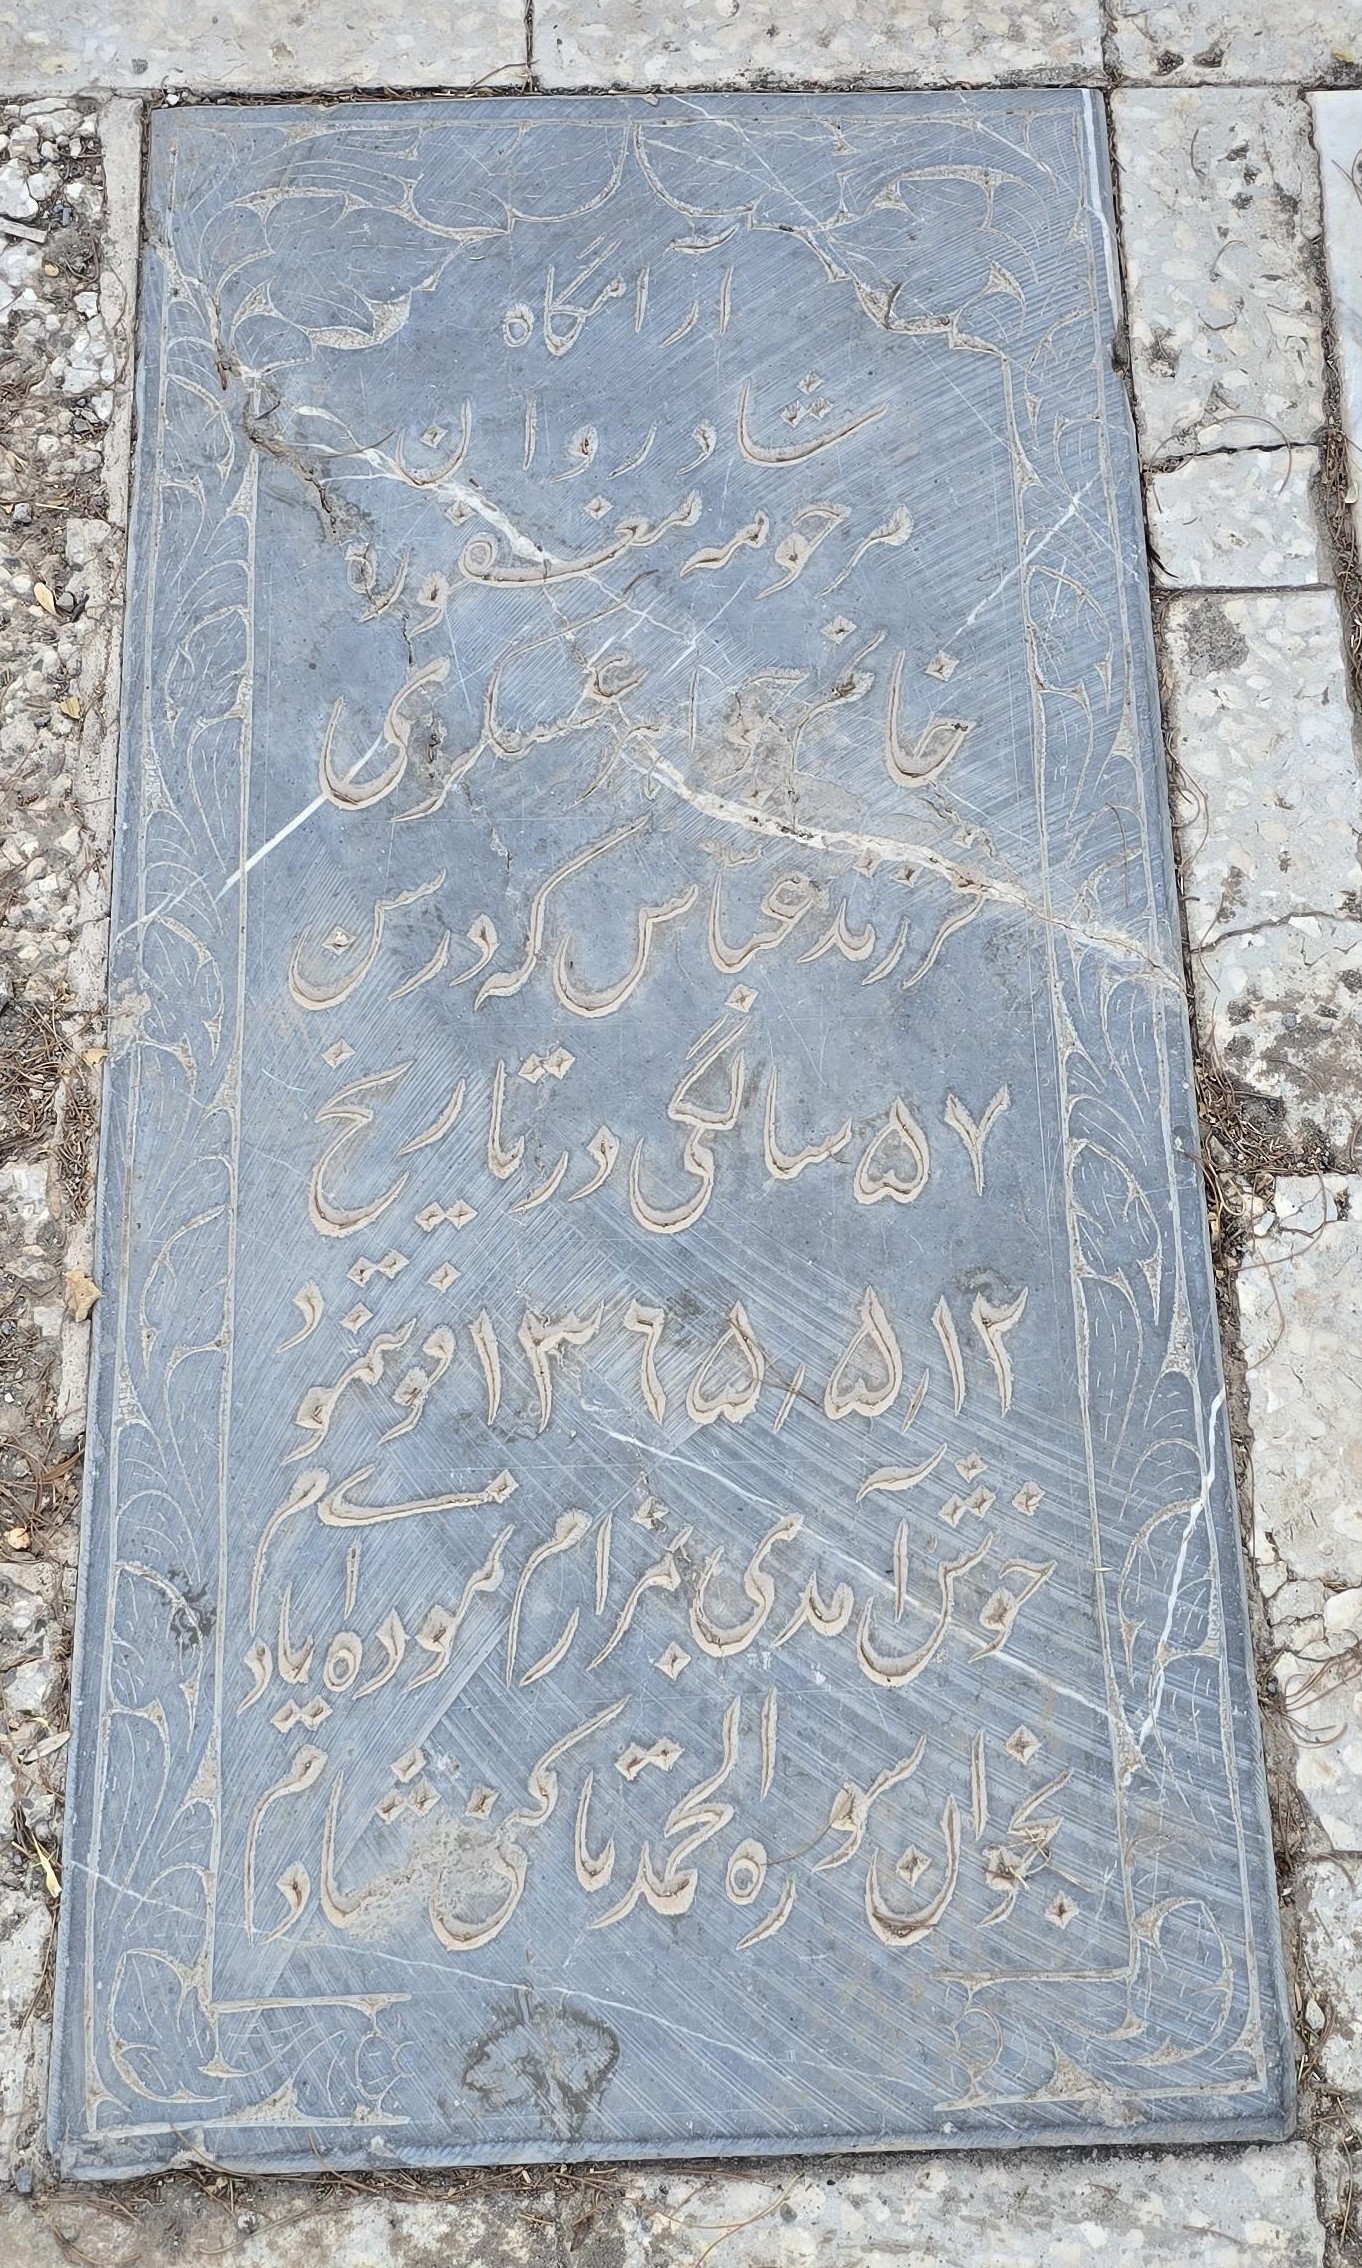 آرامگاه
شادروان
مرحومه مغفوره
خانم جواهر عسکری
فرزند عباس که در سن
۵۷ سالگی در تاریخ
۱۳۶۵٫۵٫۱۲ فوت نمود
خوش آمدی بمزارم نموده ای یادم
بخوان سوره الحمد تا کنی شادم